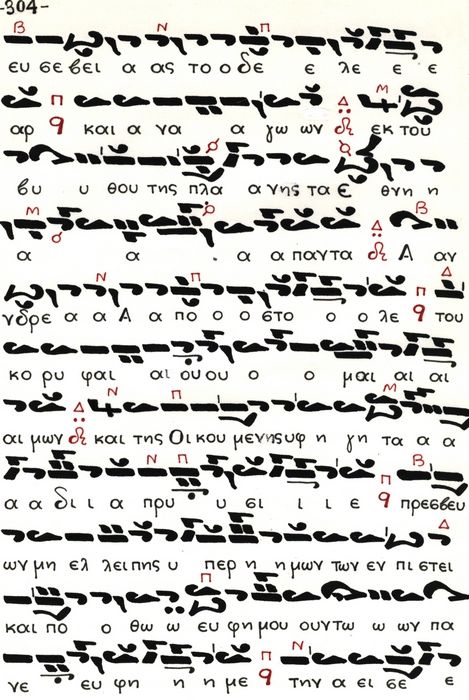 -304-
ευ σε βει α ας το ο δε ε λε ε ε
αρ και α να α γω ων εκ του
βυ υ θου της πλα α νης τα ε θνη η
α α α α παντα Α αν
νδρε α α Α α πο ο ο στο ο ο λε του
κο ρυ φαι αι ου ου ο ο μαι αι αι
αι μων και της Οι κου μενης υφ η γη τα α α
α α δι ι α πρυ υ σι ι ι ε πρεσβευ
ων μη ελ λειπης υ περ η ημων των εν πι στει
και πο ο θω ω ευ φημου ουντω ω ων πα
νε ευ φη η η με την α ει σε ε